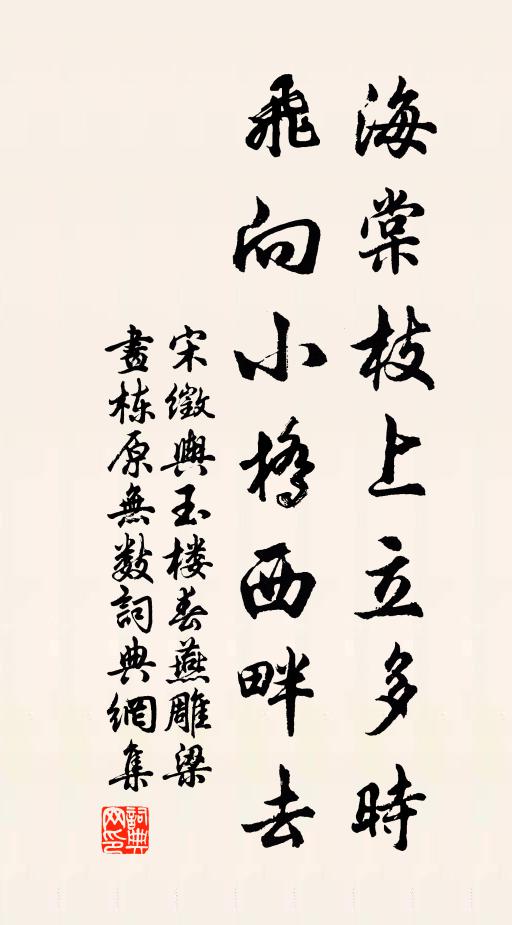 海棠枝上立多時
飛向小橋西畔去
宋徵輿玉楼春燕雕梁
畫栋原無數詞典網集
詞典
网印